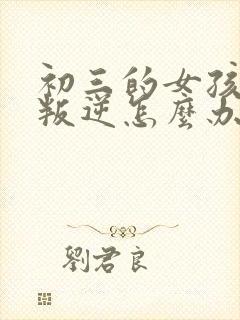 初三的女孩
叛逆怎麼办
劉君良